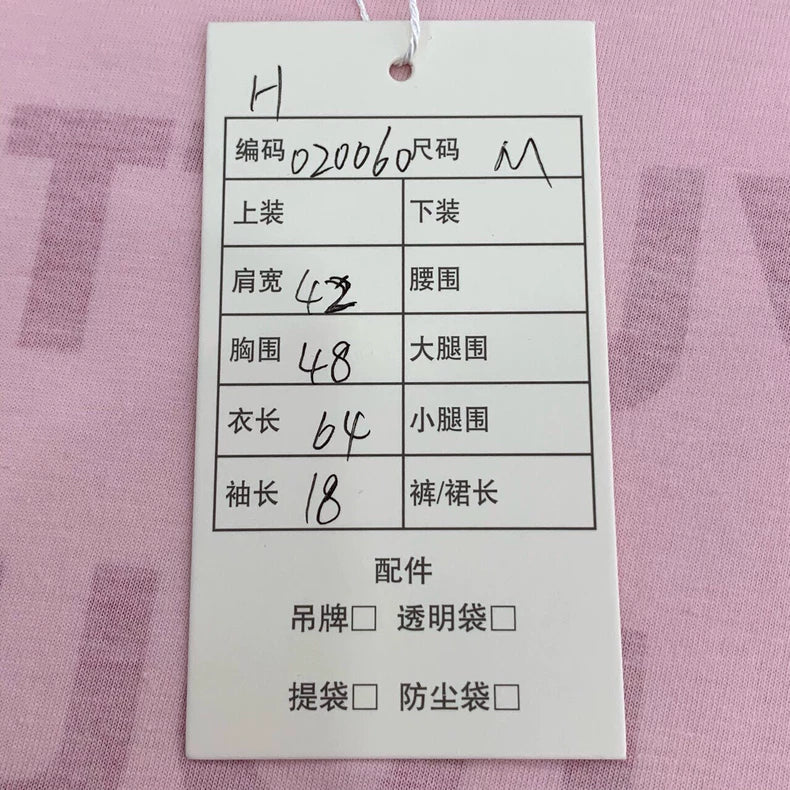 H
编码 020060 尺码 M
上装 下装
肩宽 42 腰围
胸围 48 大腿围
衣长 64 小腿围
袖长 18 裤/裙长
配件
吊牌□ 透明袋□
提袋□ 防尘袋□